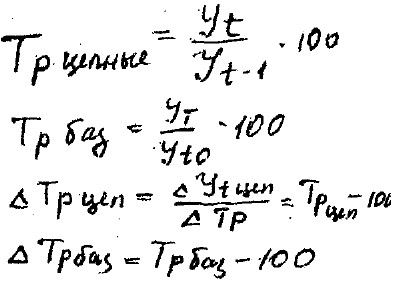 Тр цепные = yt / yt-1 · 100
Тр баз = yт / yt0 · 100
Δ Тр цеп = Δ yt цеп / Δ ТР = Тр цеп - 100
Δ Тр баз = Тр баз - 100